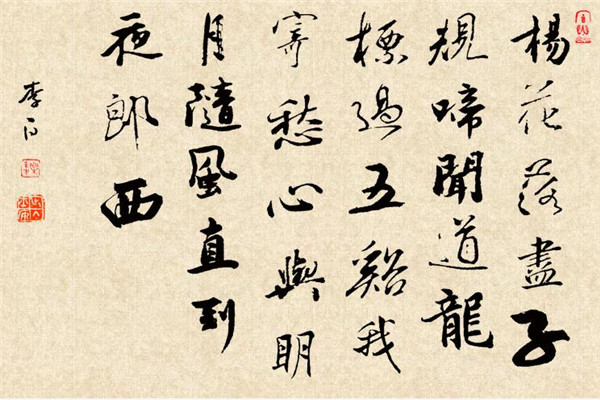 楊花落盡子
規啼聞道龍
標過五谿我
寄愁心與明
月隨風直到
夜郎西
李白